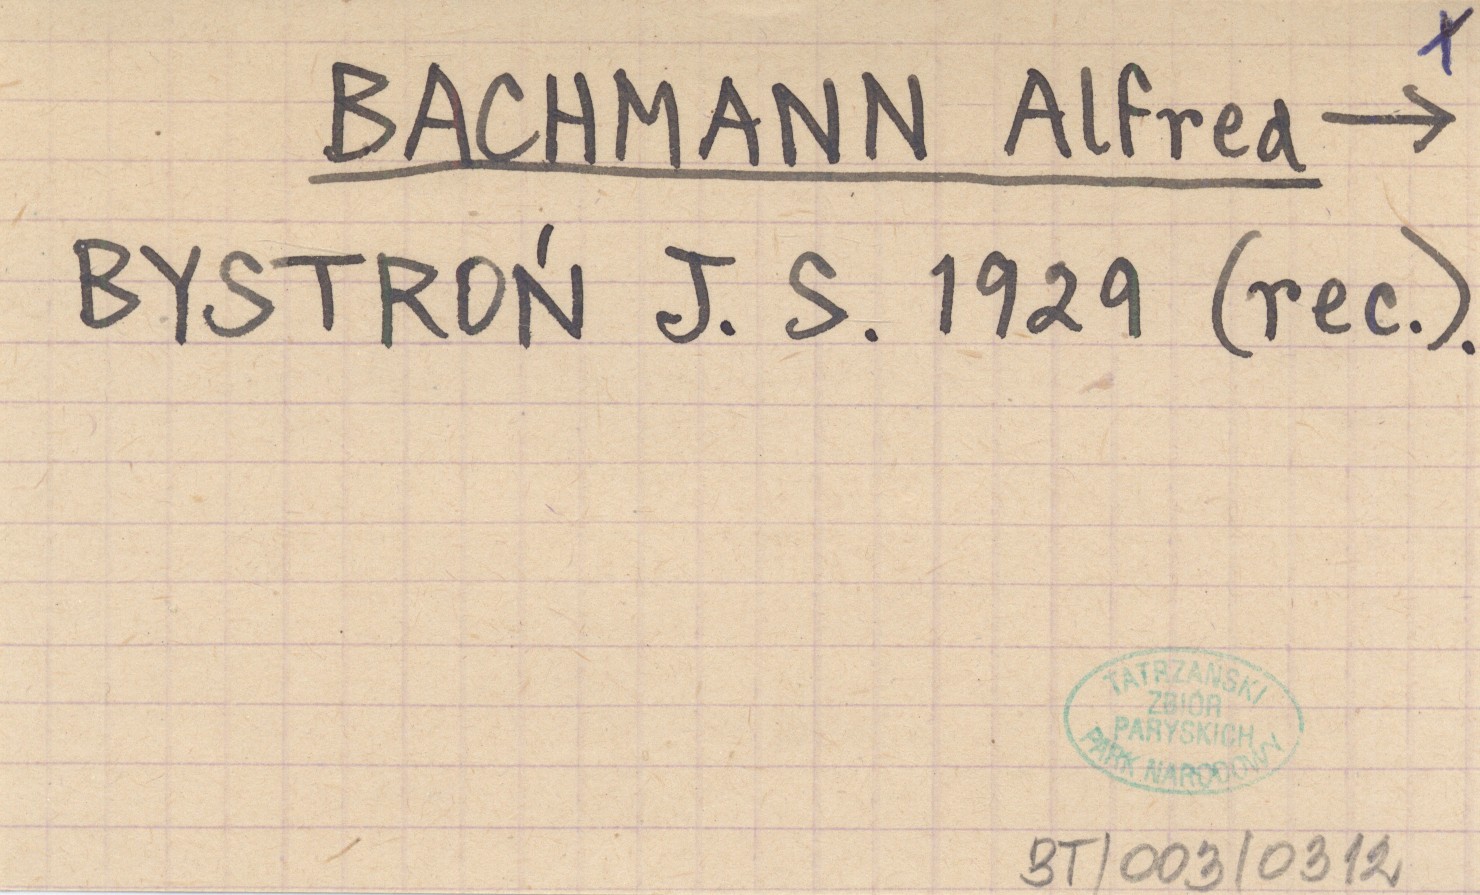 x
BACHMANN Alfred →
BYSTROŃ J. S. 1929 (rec.).
TATRZAŃSKI
ZBIÓR
PARYSKICH
PARK NARODOWY
BT/003/0312